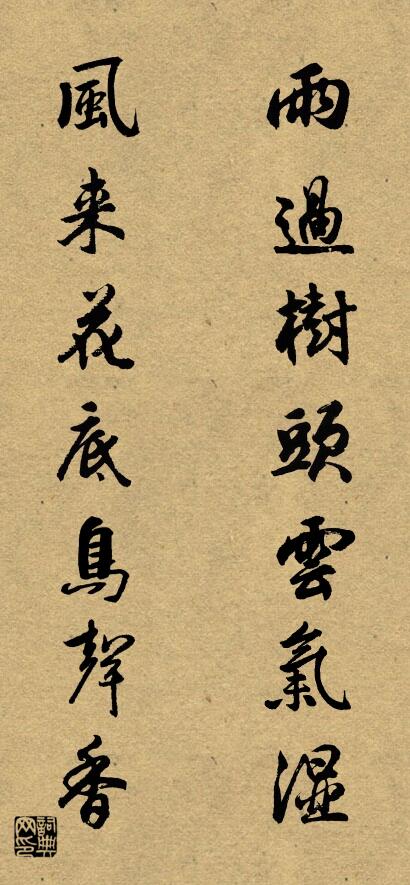 雨過樹頭雲氣濕
風来花底鳥聲香
詞典网印